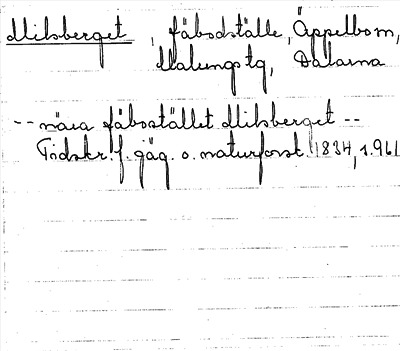 Milsberget, fäbodställe, Äppelbom,
Malungs tg, Dalarna
-- nära fäbostället Milsberget --
Tidskr. f. jäg. o. naturforsk. 1834, s. 961